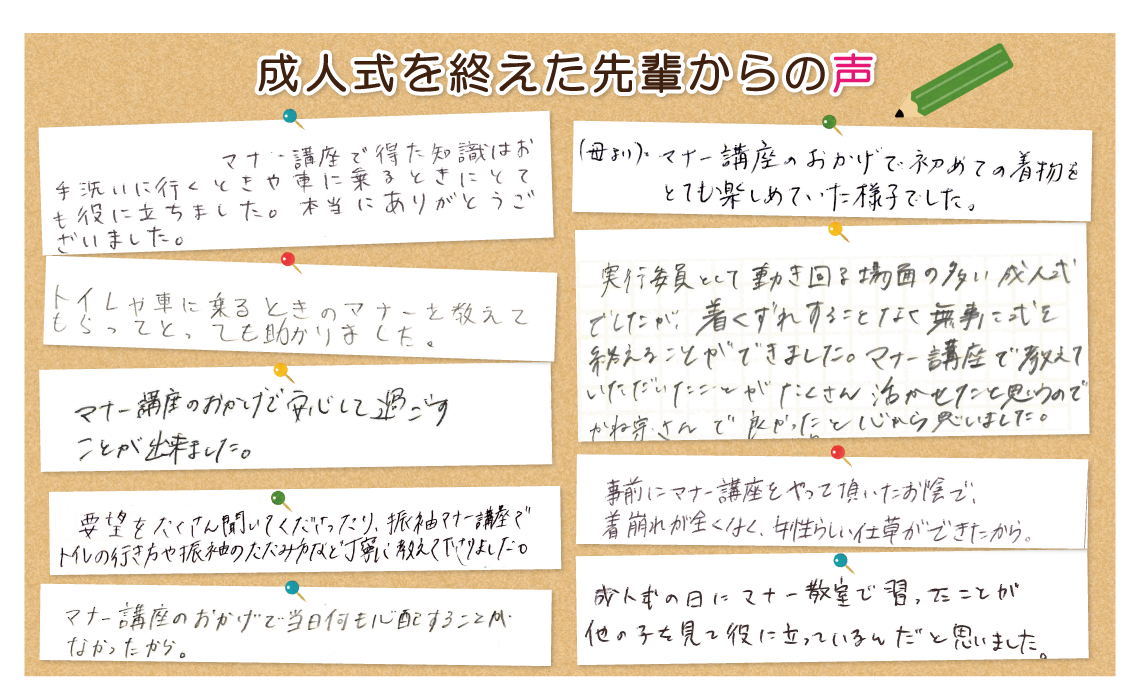 成人式を終えた先輩からの声
マナー講座で得た知識はお
手洗いに行くときや車に乗るときにとて
も役に立ちました。本当にありがとうご
ざいました。
トイレや車に乗るときのマナーを教えて
もらってとっても助かりました。
マナー講座のおかげで安心して過ごす
ことが出来ました。
要望をたくさん聞いてくださったり、振袖マナー講座で
トイレの行き方や振袖のたたみ方など丁寧に教えて下さりました。
マナー講座のおかげで当日何も心配することが
なかったから。
(母より)：マナー講座のおかげで初めての着物を
とても楽しめていた様子でした。
実行委員として動き回る場面の多い成人式
でしたが、着くずれすることなく無事に式を
終えることができました。マナー講座で教えて
いただいたことがたくさん活かせたと思うので
かね宗さんで良かったと心から思いました。
事前にマナー講座をやって頂いたお陰で、
着崩れが全くなく、女性らしい仕草ができたから。
成人式の日にマナー教室で習ったことが
他の子を見て役に立っているんだと思いました。